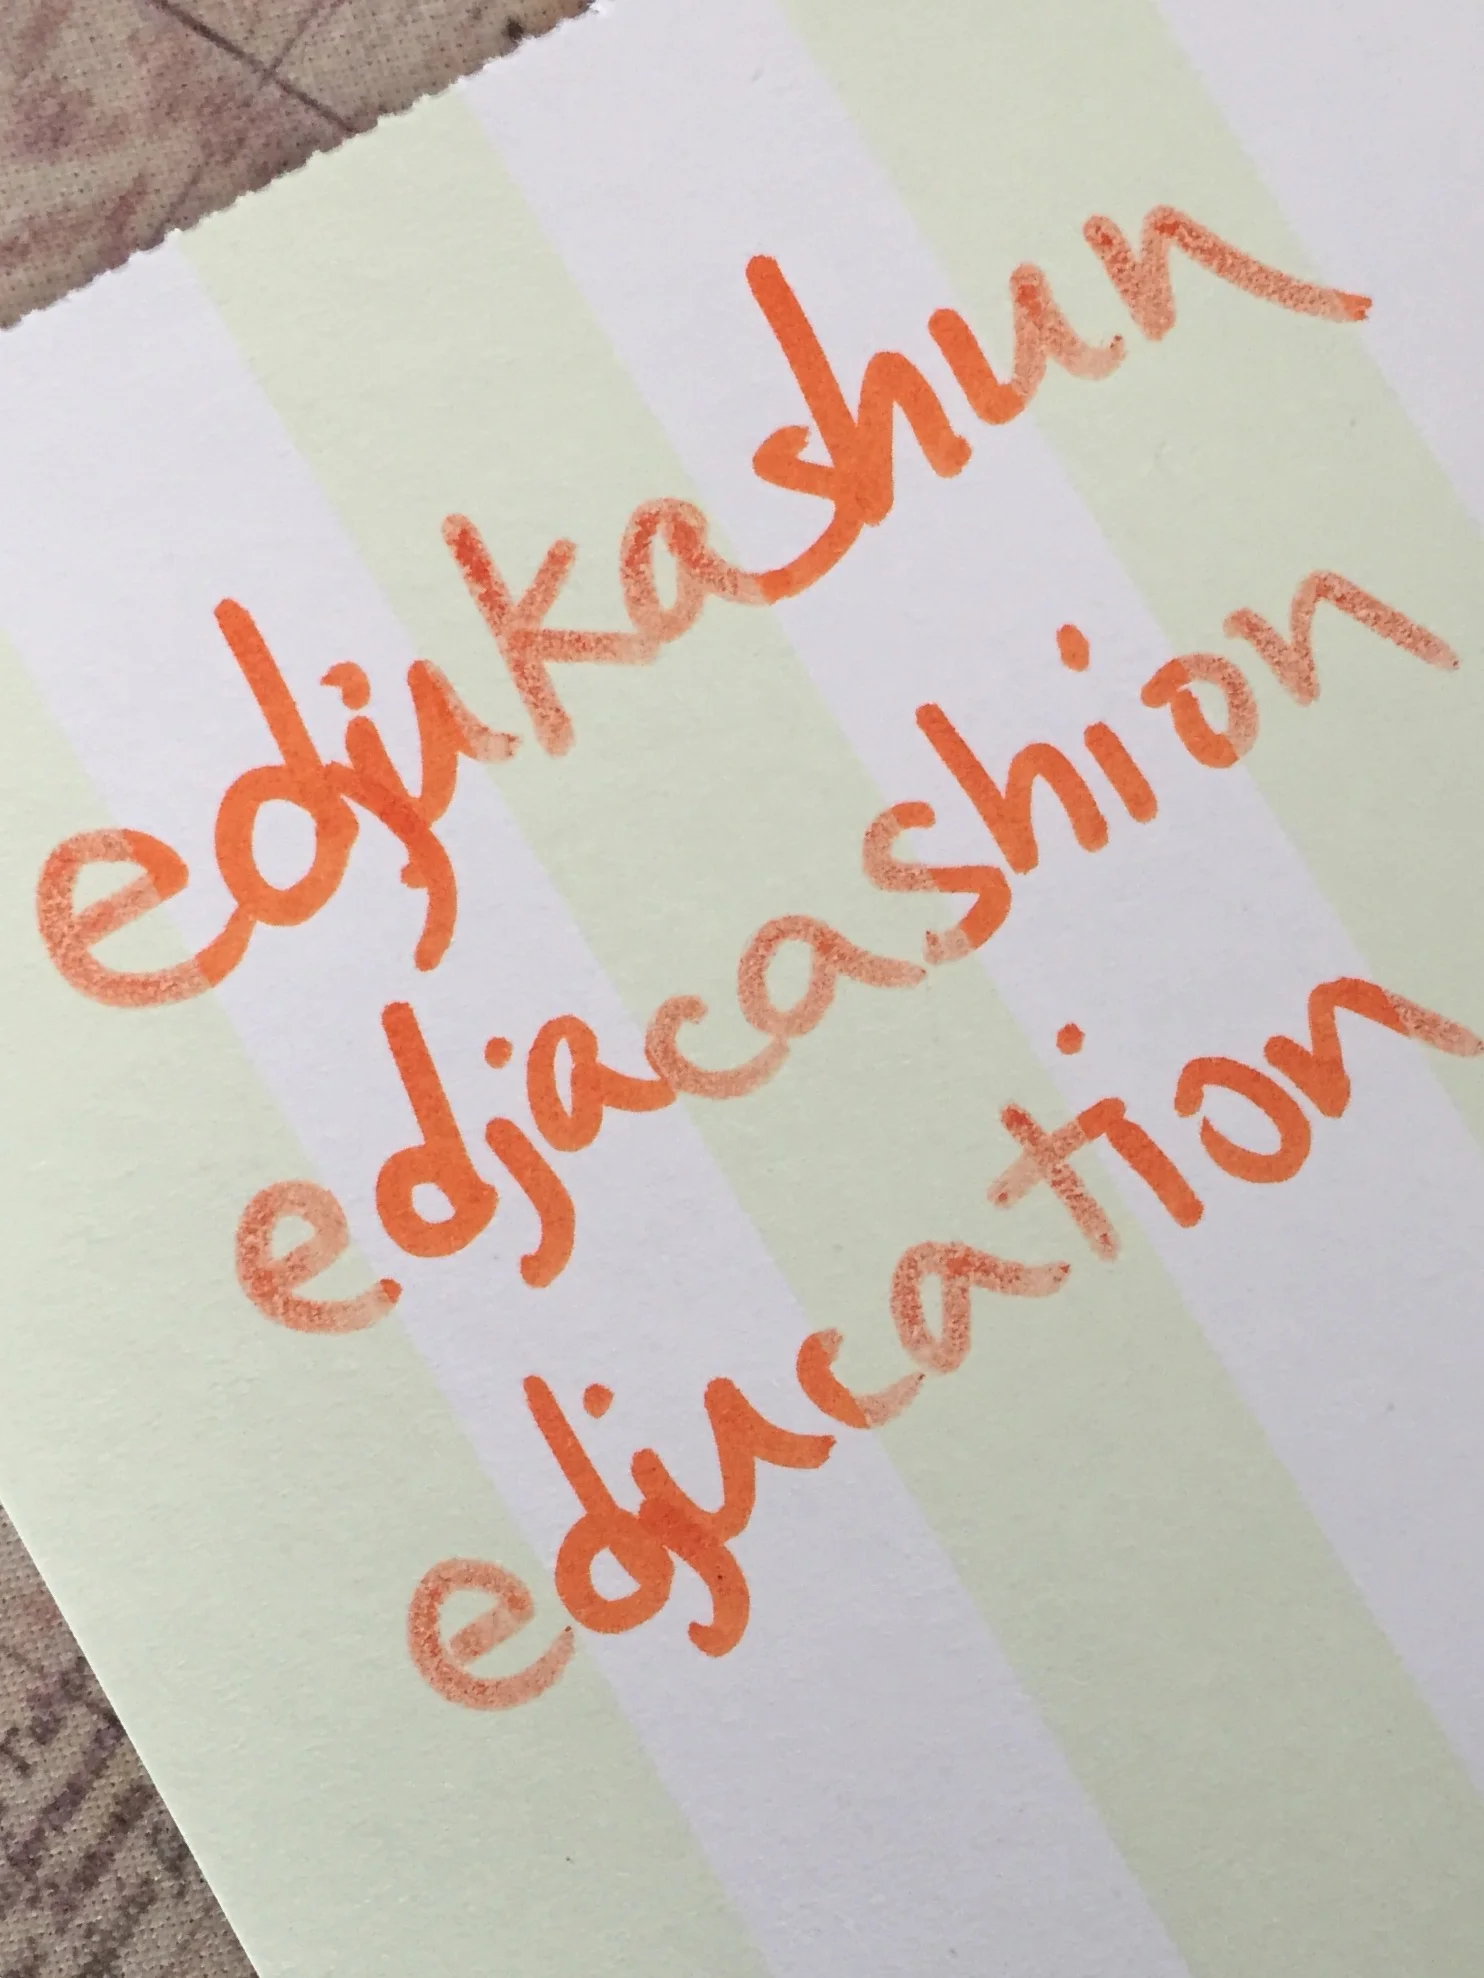 edjukashun
edjacashion
edjucation